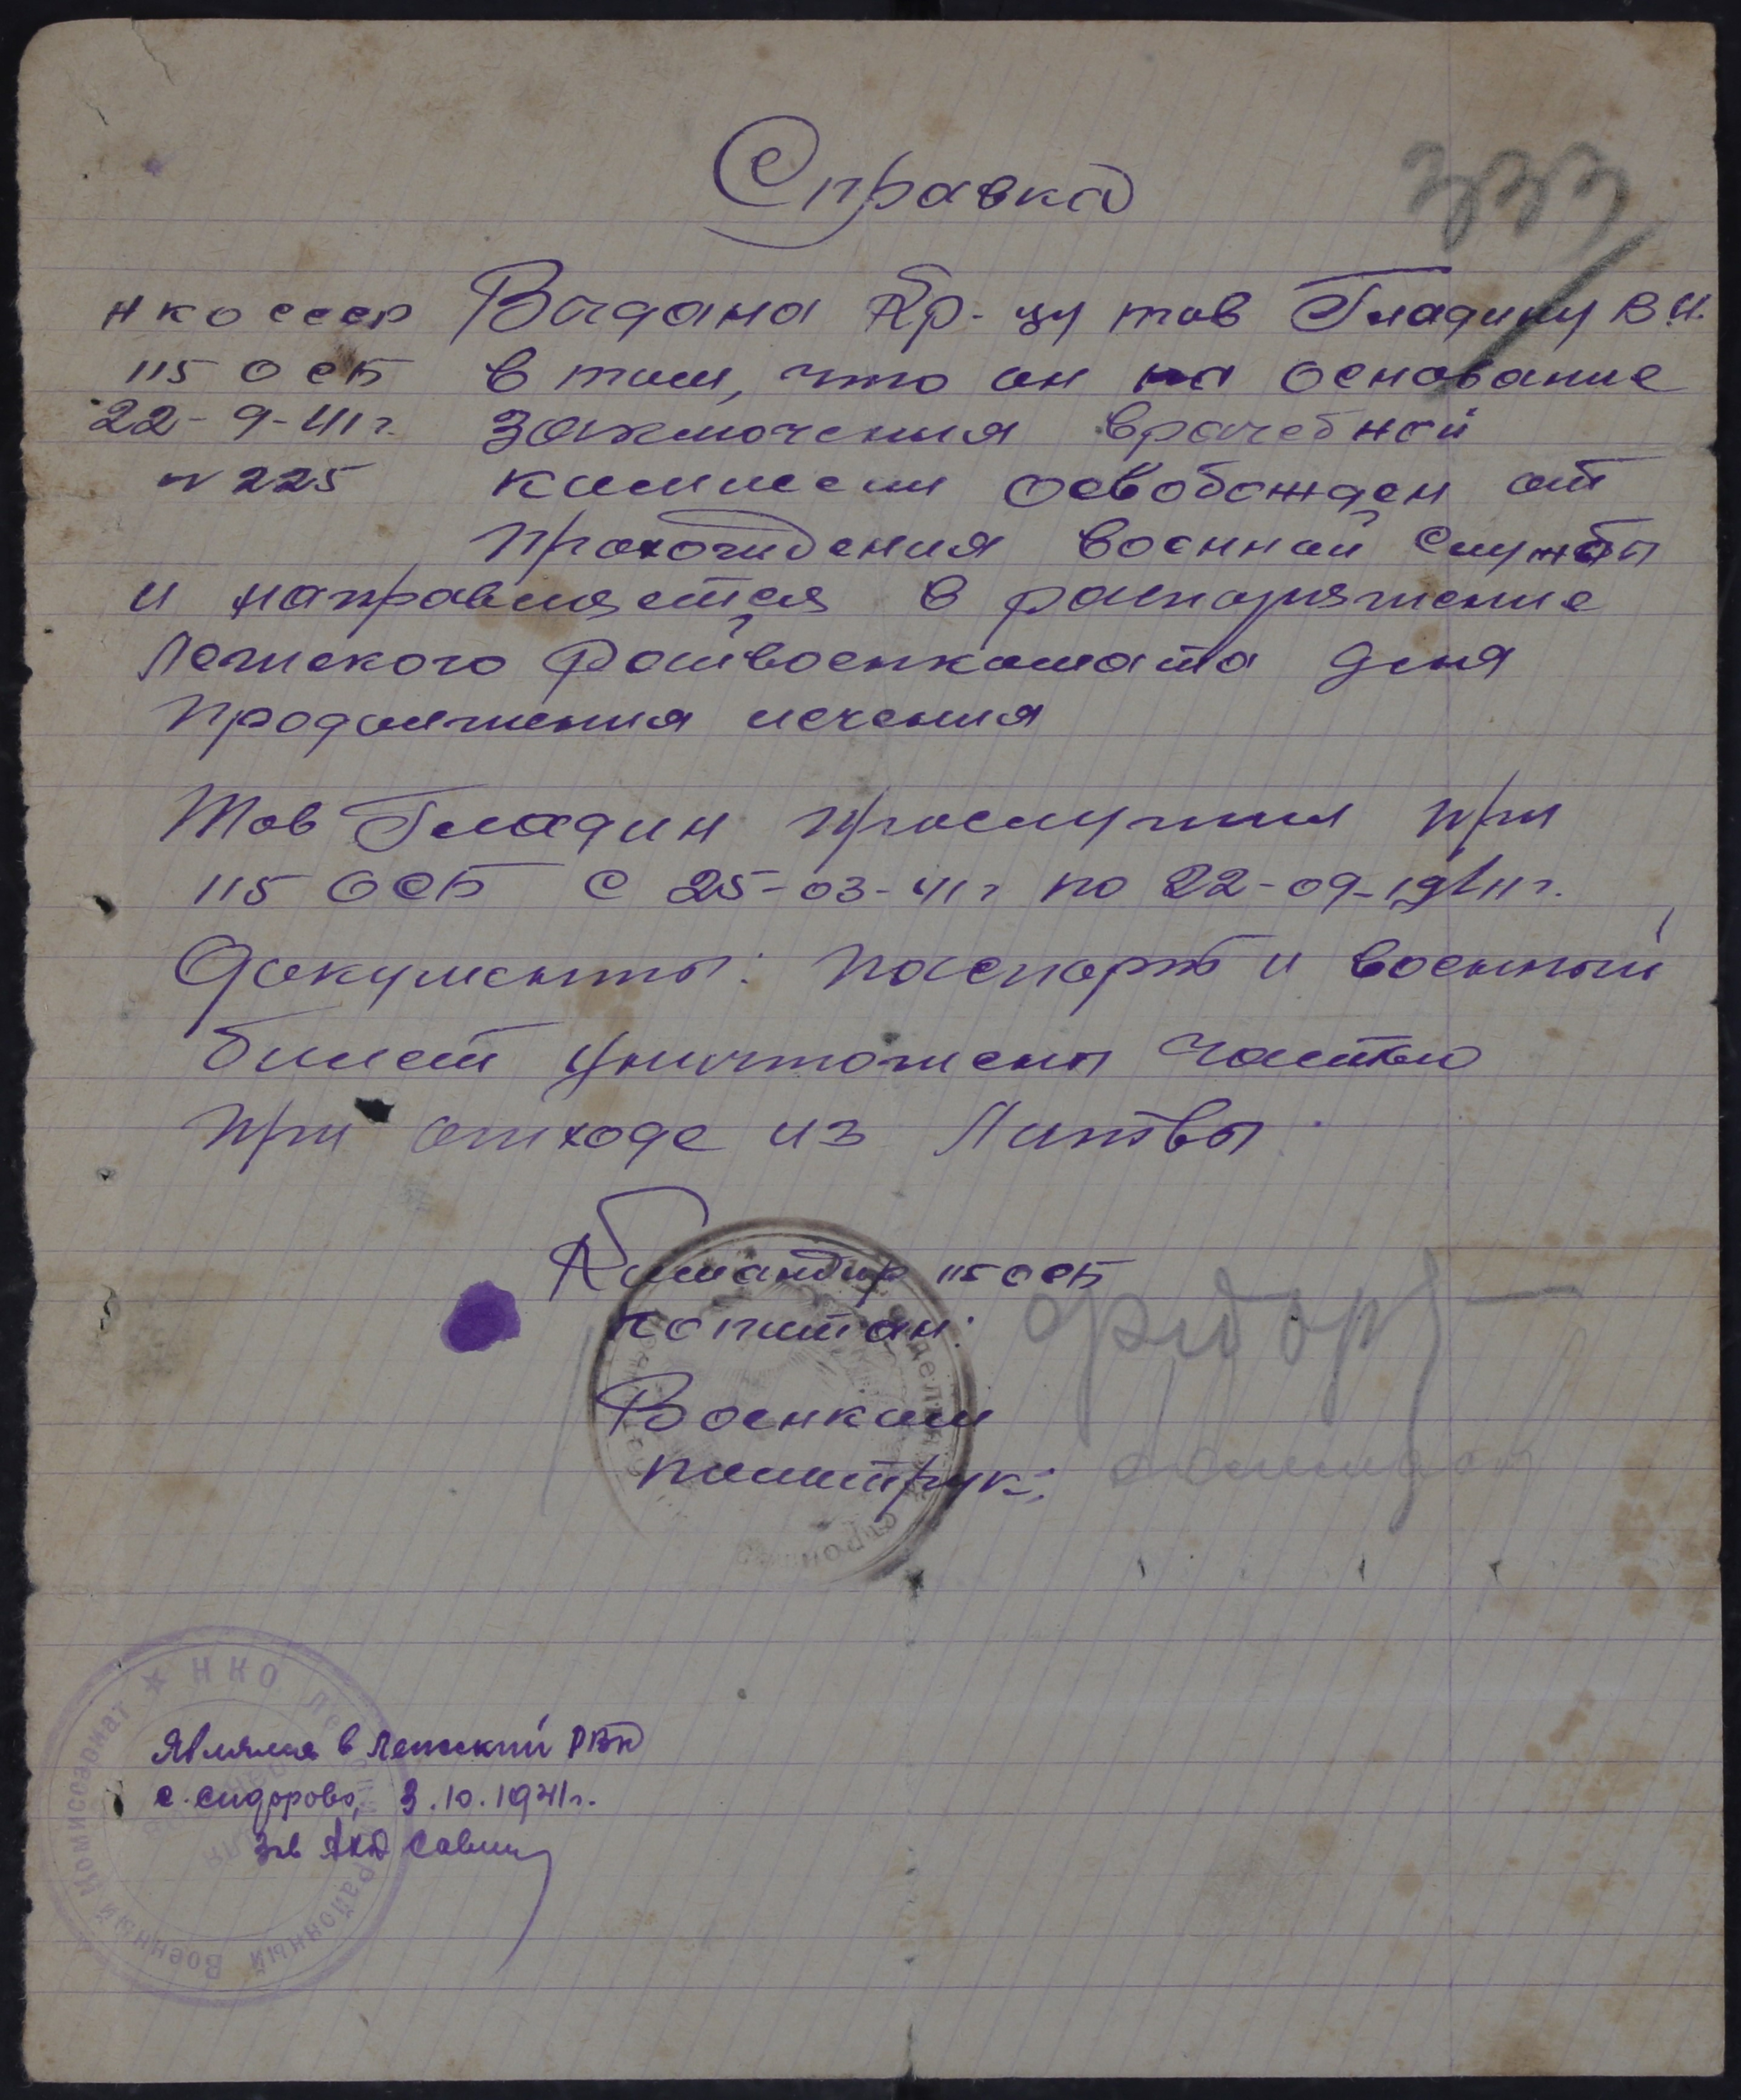 Справка
333
НКО СССР
115 ОСБ
22-9-41 г.
№ 225
Выдана кр-цу тов Гладину В.И.
в том, что он на основание
заключения врачебной
комиссии освобожден от
прохождения военной службы
и направляется в распоряжение
Лежского Райвоенкомата для
продолжения лечения
Тов Гладин прослужил при
115 ОСБ с 25-03-41 г по 22-09-1941 г.
Документы: паспорт и военный
билет уничтожены частью
при отходе из Литвы.
Командир 115 ОСБ
капитан:
Военком
политрук:
Являлся в Лежский РВК
с. Сидорово, 3.10.1941 г.
Савин
★ НКО Районный Военный Комиссариат